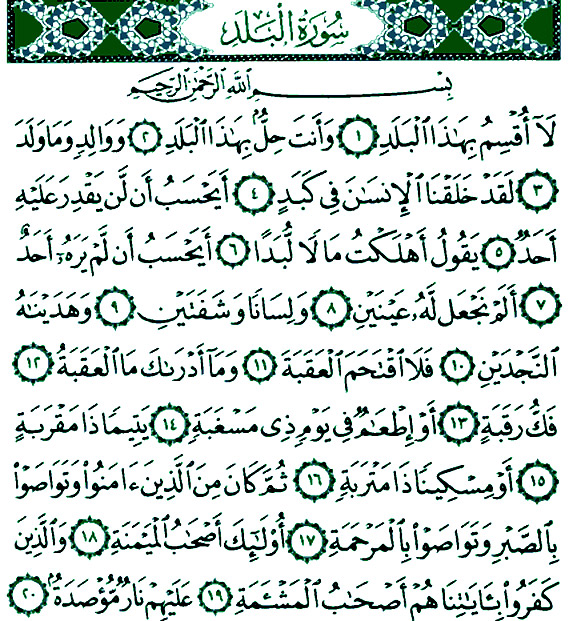 سُورَةُ الْبَلَدِ
بِسْمِ اللَّهِ الرَّحْمَٰنِ الرَّحِيمِ
لَآ أُقْسِمُ بِهَٰذَا ٱلْبَلَدِ ١ وَأَنتَ حِلٌّۢ بِهَٰذَا ٱلْبَلَدِ ٢ وَوَالِدٍ وَمَا وَلَدَ
٣ لَقَدْ خَلَقْنَا ٱلْإِنسَٰنَ فِى كَبَدٍ ٤ أَيَحْسَبُ أَن لَّن يَقْدِرَ عَلَيْهِ
أَحَدٌ ٥ يَقُولُ أَهْلَكْتُ مَالًا لُّبَدًا ٦ أَيَحْسَبُ أَن لَّمْ يَرَهُۥٓ أَحَدٌ
٧ أَلَمْ نَجْعَل لَّهُۥ عَيْنَيْنِ ٨ وَلِسَانًا وَشَفَتَيْنِ ٩ وَهَدَيْنَٰهُ
ٱلنَّجْدَيْنِ ١٠ فَلَا ٱقْتَحَمَ ٱلْعَقَبَةَ ١١ وَمَآ أَدْرَىٰكَ مَا ٱلْعَقَبَةُ ١٢
فَكُّ رَقَبَةٍ ١٣ أَوْ إِطْعَٰمٌ فِى يَوْمٍ ذِى مَسْغَبَةٍ ١٤ يَتِيمًا ذَا مَقْرَبَةٍ
١٥ أَوْ مِسْكِينًا ذَا مَتْرَبَةٍ ١٦ ثُمَّ كَانَ مِنَ ٱلَّذِينَ ءَامَنُوا۟ وَتَوَاصَوْا۟
بِٱلصَّبْرِ وَتَوَاصَوْا۟ بِٱلْمَرْحَمَةِ ١٧ أُو۟لَٰٓئِكَ أَصْحَٰبُ ٱلْمَيْمَنَةِ ١٨ وَٱلَّذِينَ
كَفَرُوا۟ بِـَٔايَٰتِنَا هُمْ أَصْحَٰبُ ٱلْمَشْـَٔمَةِ ١٩ عَلَيْهِمْ نَارٌ مُّؤْصَدَةٌۢ ٢٠